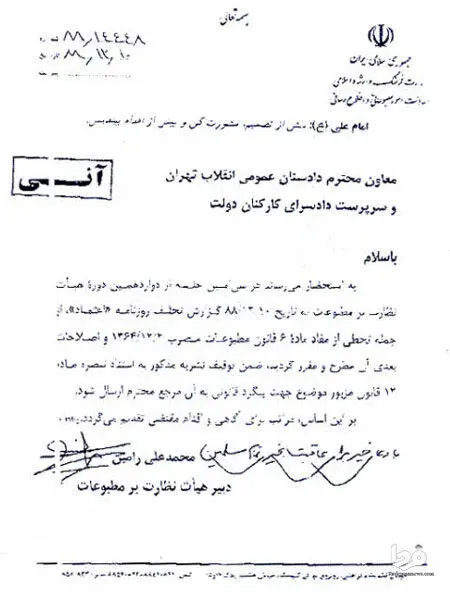 بسمه تعالی
۸۸/۱۴۴۴۸
۸۸/۱۲/۱۰
جمهوری اسلامی ایران
وزارت فرهنگ و ارشاد اسلامی
معاونت امور مطبوعاتی و اطلاع رسانی
امام علی (ع): پیش از تصمیم، مشورت کن و پیش از اقدام بیندیش.
آنـی
معاون محترم دادستان عمومی انقلاب تهران
و سرپرست دادسرای کارکنان دولت
باسلام
به استحضار می‌رساند در سی‌امین جلسه از دوازدهمین دورهٔ هیأت
نظارت بر مطبوعات به تاریخ ۸۸/۱۲/۱۰ گزارش تخلف روزنامه «اعتماد»، از
جمله تخطی از مفاد مادهٔ ۶ قانون مطبوعات مصوب ۱۳۶۴/۱۲/۲ و اصلاحات
بعدی آن مطرح و مقرر گردید، ضمن توقیف نشریه مذکور به استناد تبصره ماده
۱۲ قانون مزبور موضوع جهت پیگرد قانونی به آن مرجع محترم ارسال شود.
بر این اساس، مراتب برای آگاهی و اقدام مقتضی تقدیم می‌گردد.
با دعای خیر برای عاقبت بخیری تمام مسلمین
محمدعلی رامین
دبیر هیأت نظارت بر مطبوعات
فردا